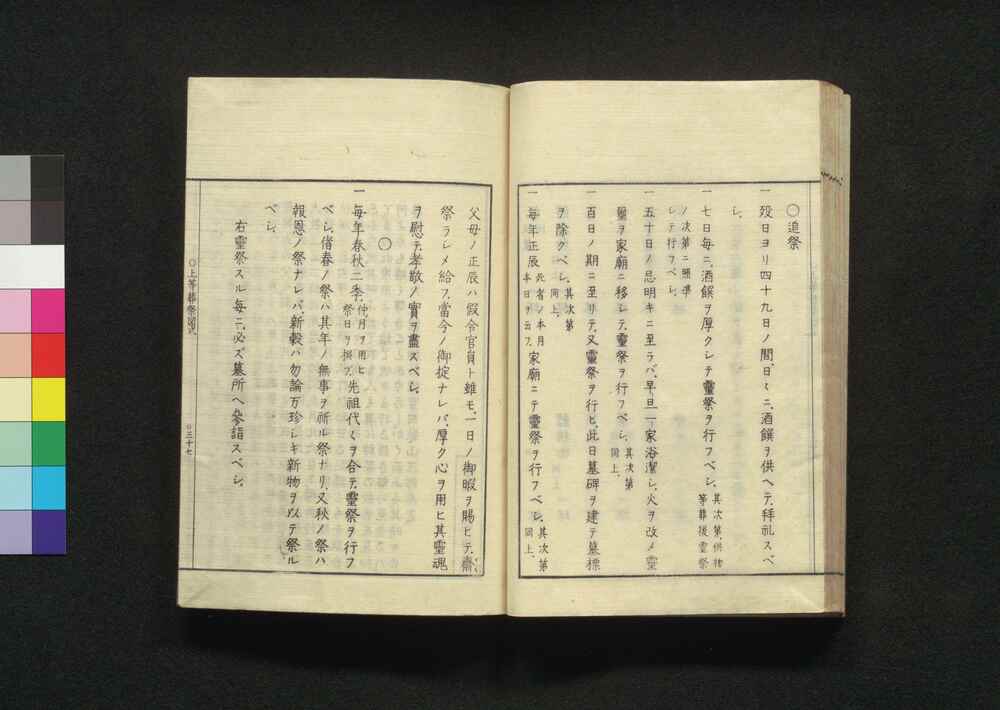 〇追祭
一 歿日ヨリ四十九日ノ間、日々ニ、酒饌ヲ供ヘテ、拜礼スベ
シ、
一 七日毎ニ、酒饌ヲ厚クシテ靈祭ヲ行フベシ、其次第、供物
等葬後靈祭
ノ次第ニ照準
シテ行フベシ、
一 五十日ノ忌明キニ至ラバ、早旦一家浴潔シ、火ヲ改メ靈
璽ヲ家廟ニ移シテ、靈祭ヲ行フベシ、其次第
同上、
一 百日ノ期ニ至リテ、又靈祭ヲ行ヒ、此日墓碑ヲ建テ墓標
ヲ除クベシ、其次第
同上、
一 毎年正辰死者ノ本月
本日ヲ云フ、家廟ニテ靈祭ヲ行フベシ、其次第
同上、
父母ノ正辰ハ假令官員ト雖モ、一日ノ御暇ヲ賜ヒテ、齋
祭ラシメ給フ、當今ノ御掟ナレバ、厚ク心ヲ用ヒ其靈魂
ヲ慰テ孝敬ノ實ヲ盡スベシ、
〇
一 毎年春秋二季、仲月ヲ用ヒ
祭日ヲ撰ブ、先祖代々ヲ合テ、靈祭ヲ行フ
ベシ、偖春ノ祭ハ其年ノ無事ヲ祈ル祭ナリ、又秋ノ祭ハ
報恩ノ祭ナレバ、新穀ハ勿論万珍シキ新物ヲ以テ祭ル
ベシ、
右靈祭スル毎ニ、必ズ墓所ヘ參詣スベシ、
〇上等葬祭圖式
〇三十七